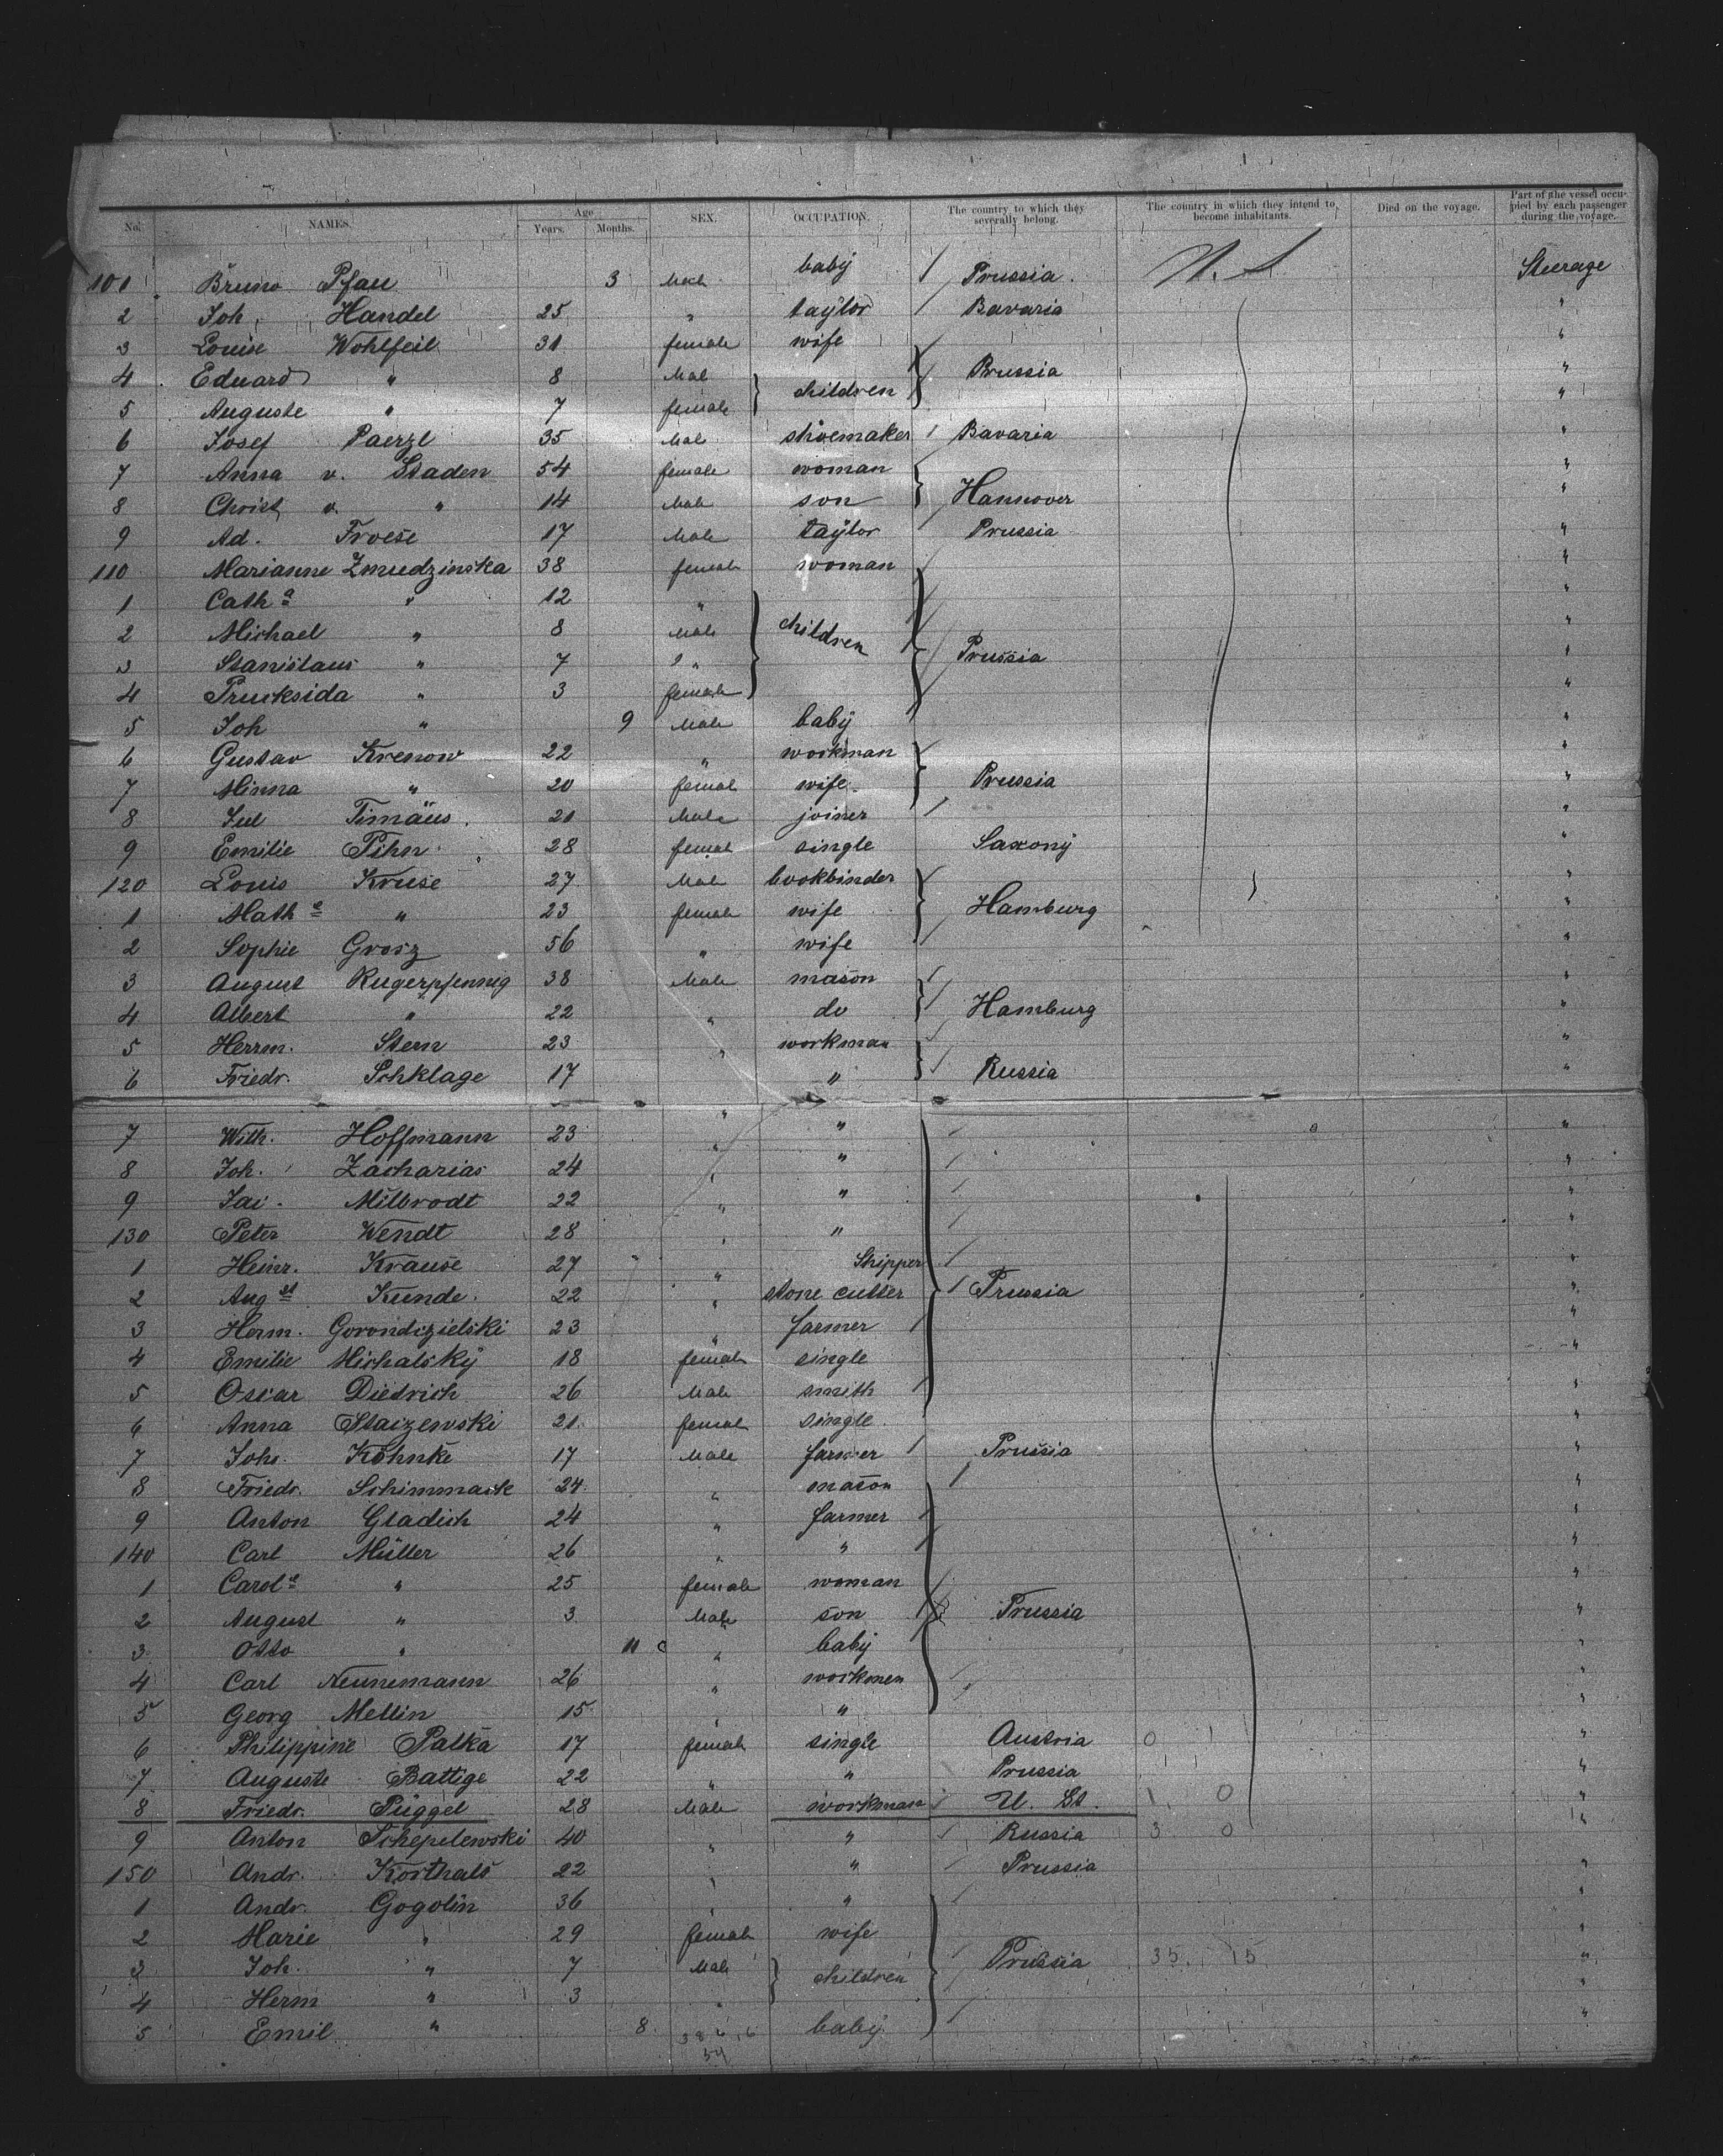 No. NAMES. Age Years. Months. SEX. OCCUPATION. The country to which they severally belong. The country in which they intend to become inhabitants. Died on the voyage. Part of the vessel occupied by each passenger during the voyage.
101 Bruno Pfau 3 Male baby Prussia. U. S Steerage
2 Joh. Handel 25 " taylor Bavaria "
3 Louise Wohlfeil 31 female wife "
4 Eduard " 8 Male children Prussia "
5 Auguste " 7 female "
6 Josef Paerzl 35 Male shoemaker Bavaria "
7 Anna v. Staden 54 female woman "
8 Christ v. " 14 Male son Hannover "
9 Ad. Froese 17 Male taylor Prussia "
110 Marianne Zmudzinska 38 female woman "
1 Cath a " 12 " "
2 Michael " 8 Male children "
3 Stanislaus " 7 " Prussia "
4 Prucksida " 3 female "
5 Joh " 9 Male baby "
6 Gustav Krenow 22 " workman "
7 Minna " 20 female wife Prussia "
8 Jul Timäus. 21 Male joiner "
9 Emilie Pihn 28 female single Saxony "
120 Louis Kruse 27 Male bookbinder "
1 Math e " 23 female wife Hamburg "
2 Sophie Grosz 56 " wife "
3 August Rugerpfennig 38 Male mason "
4 Albert " 22 " do Hamburg "
5 Herrm. Stern 23 " workman "
6 Friedr. Schklage 17 " " Russia "
7 Wilh. Hoffmann 23 " " "
8 Joh. Zacharias 24 " " "
9 Jac. Milbrodt 22 " " "
130 Peter Wendt 28 " " "
1 Heinr. Krause 27 " Shipper "
2 Aug st Kunde. 22 " stone cutter Prussia "
3 Herm. Gorondizielski 23 " farmer "
4 Emilie Michalsky 18 female single "
5 Oscar Diedrich 26 Male smith "
6 Anna Staizewski 21 female single "
7 Johs. Köhnke 17 Male farmer Prussia "
8 Friedr. Schimmack 24 " mason "
9 Anton Gladich 24 " farmer "
140 Carl Müller 26 " " "
1 Carol e " 25 female woman "
2 August " 3 Male son Prussia "
3 Otto " 11 " baby "
4 Carl Neunemann 26 " workmen " "
5 Georg Mellin 15 " " "
6 Philippine Palka 17 female single Austria 0 "
7 Auguste Battige 22 " " Prussia "
8 Friedr. Püggel 28 Male workman U. St. 1 0 "
9 Anton Schepelewski 40 " " Russia 3 0 "
150 Andr. Korthals 22 " " Prussia "
1 Andr. Gogolin 36 " " "
2 Marie " 29 female wife "
3 Joh. " 7 Male children Prussia 35 15 "
4 Herm " 3 " "
5 Emil " 8 baby "
54